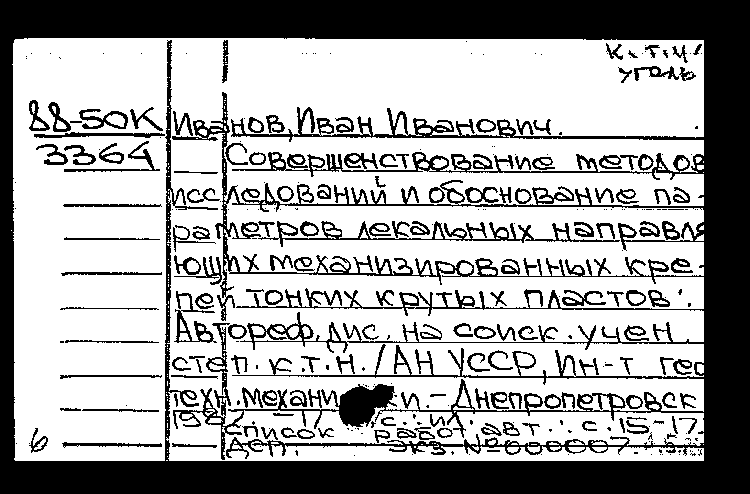 к.т.н.
уголь
88-50К Иванов, Иван Иванович.
3364 Совершенствование методов
исследований и обоснование па-
раметров лекальных направля
ющих механизированных кре-
пей тонких крутых пластов.
Автореф. дис. на соиск. учен.
степ. к.т.н. / АН УССР, Ин-т гео
техн. механи и. - Днепропетровск
с. ил.
Список работ авт.: с. 15-17.
6 Деп. экз. № 000007.